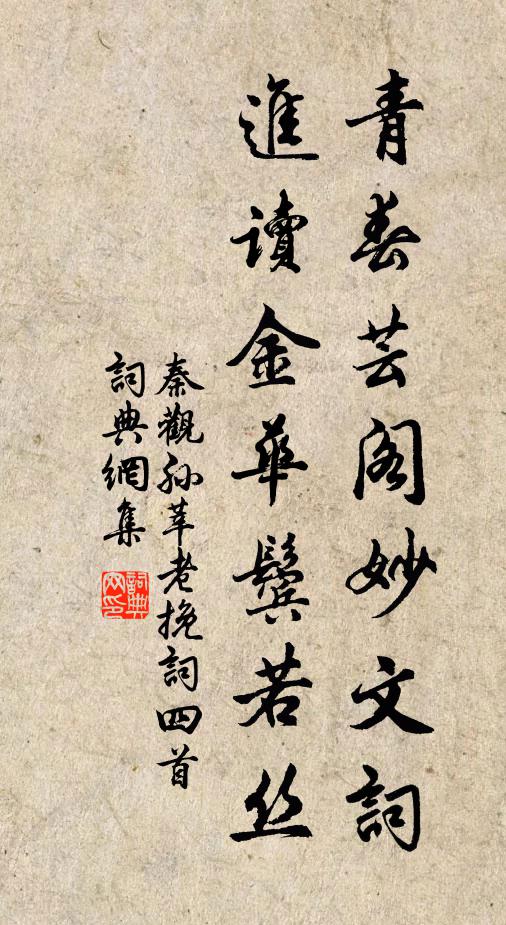 青春芸阁妙文詞
進讀金華鬢若丝
秦觀孙莘老挽詞四首
詞典網集
詞典网印